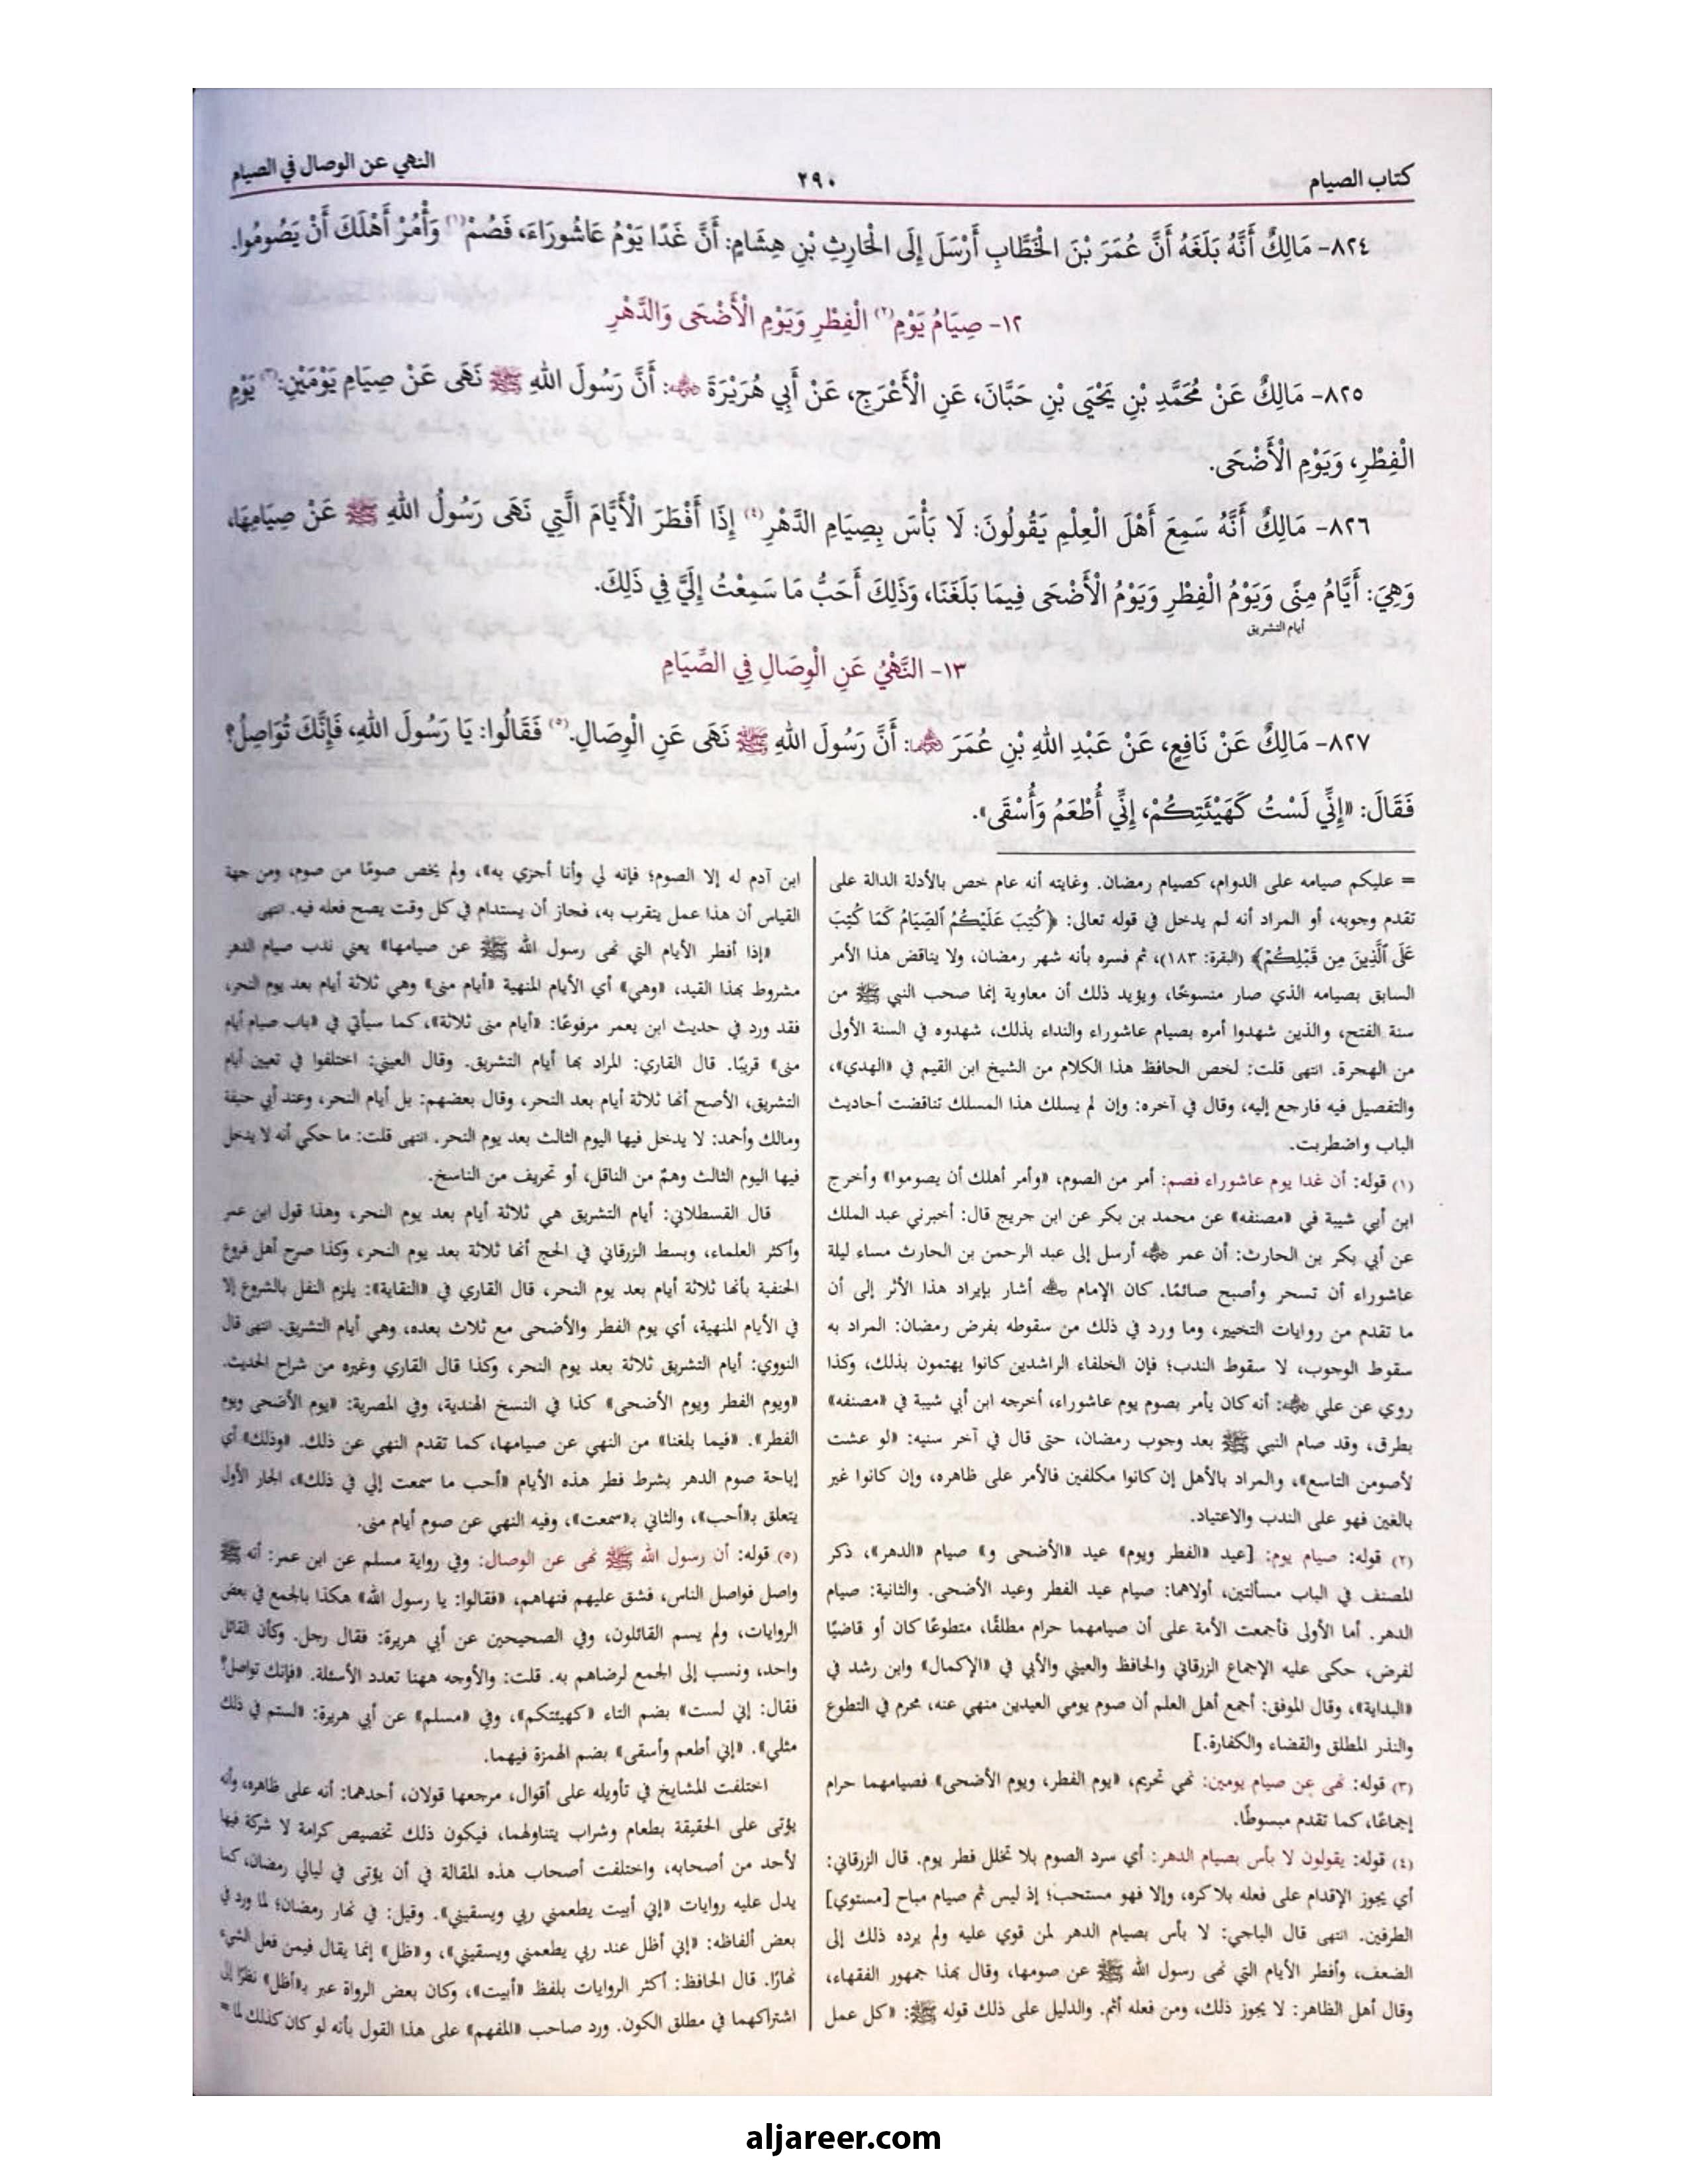 كتاب الصيام
٢٩٠
النهي عن الوصال في الصيام
٨٢٤- مَالِكٌ أَنَّهُ بَلَغَهُ أَنَّ عُمَرَ بْنَ الْخَطَّابِ أَرْسَلَ إِلَى الْحَارِثِ بْنِ هِشَامٍ: أَنَّ غَدًا يَوْمُ عَاشُورَاءَ، فَصُمْ(١) وَأْمُرْ أَهْلَكَ أَنْ يَصُومُوا.
١٢- صِيَامُ يَوْمِ(٢) الْفِطْرِ وَيَوْمِ الْأَضْحَى وَالدَّهْرِ
٨٢٥- مَالِكٌ عَنْ مُحَمَّدِ بْنِ يَحْيَى بْنِ حَبَّانَ، عَنِ الْأَعْرَجِ، عَنْ أَبِي هُرَيْرَةَ ﵁: أَنَّ رَسُولَ اللهِ ﷺ نَهَى عَنْ صِيَامِ يَوْمَيْنِ:(٣) يَوْمِ
الْفِطْرِ، وَيَوْمِ الْأَضْحَى.
٨٢٦- مَالِكٌ أَنَّهُ سَمِعَ أَهْلَ الْعِلْمِ يَقُولُونَ: لَا بَأْسَ بِصِيَامِ الدَّهْرِ(٤) إِذَا أَفْطَرَ الْأَيَّامَ الَّتِي نَهَى رَسُولُ اللهِ ﷺ عَنْ صِيَامِهَا،
وَهِيَ: أَيَّامُ مِنًى وَيَوْمُ الْفِطْرِ وَيَوْمُ الْأَضْحَى فِيمَا بَلَغَنَا، وَذَلِكَ أَحَبُّ مَا سَمِعْتُ إِلَيَّ فِي ذَلِكَ.
أيام التشريق
١٣- النَّهْيُ عَنِ الْوِصَالِ فِي الصِّيَامِ
٨٢٧- مَالِكٌ عَنْ نَافِعٍ، عَنْ عَبْدِ اللهِ بْنِ عُمَرَ ﵄: أَنَّ رَسُولَ اللهِ ﷺ نَهَى عَنِ الْوِصَالِ.(٥) فَقَالُوا: يَا رَسُولَ اللهِ، فَإِنَّكَ تُوَاصِلُ؟
فَقَالَ: «إِنِّي لَسْتُ كَهَيْئَتِكُمْ، إِنِّي أُطْعَمُ وَأُسْقَى».
= عليكم صيامه على الدوام، كصيام رمضان. وغايته أنه عام خص بالأدلة الدالة على
تقدم وجوبه، أو المراد أنه لم يدخل في قوله تعالى: ﴿كُتِبَ عَلَيْكُمُ ٱلصِّيَامُ كَمَا كُتِبَ
عَلَى ٱلَّذِينَ مِن قَبْلِكُمْ﴾ (البقرة: ١٨٣)، ثم فسره بأنه شهر رمضان، ولا يناقض هذا الأمر
السابق بصيامه الذي صار منسوخًا، ويؤيد ذلك أن معاوية إنما صحب النبي ﷺ من
سنة الفتح، والذين شهدوا أمره بصيام عاشوراء والنداء بذلك، شهدوه في السنة الأولى
من الهجرة. انتهى قلت: لخص الحافظ هذا الكلام من الشيخ ابن القيم في «الهدي»،
والتفصيل فيه فارجع إليه، وقال في آخره: وإن لم يسلك هذا المسلك تناقضت أحاديث
الباب واضطربت.
(١) قوله: أن غدا يوم عاشوراء فصم: أمر من الصوم، «وأمر أهلك أن يصوموا» وأخرج
ابن أبي شيبة في «مصنفه» عن محمد بن بكر عن ابن جريج قال: أخبرني عبد الملك
عن أبي بكر بن الحارث: أن عمر ﵁ أرسل إلى عبد الرحمن بن الحارث مساء ليلة
عاشوراء أن تسحر وأصبح صائمًا. كان الإمام ﵀ أشار بإيراد هذا الأثر إلى أن
ما تقدم من روايات التخيير، وما ورد في ذلك من سقوطه بفرض رمضان: المراد به
سقوط الوجوب، لا سقوط الندب؛ فإن الخلفاء الراشدين كانوا يهتمون بذلك، وكذا
روي عن علي ﵁: أنه كان يأمر بصوم يوم عاشوراء، أخرجه ابن أبي شيبة في «مصنفه»
بطرق، وقد صام النبي ﷺ بعد وجوب رمضان، حتى قال في آخر سنيه: «لو عشت
لأصومن التاسع»، والمراد بالأهل إن كانوا مكلفين فالأمر على ظاهره، وإن كانوا غير
بالغين فهو على الندب والاعتياد.
(٢) قوله: صيام يوم: [عيد «الفطر ويوم» عيد «الأضحى و» صيام «الدهر»، ذكر
المصنف في الباب مسألتين، أولاهما: صيام عيد الفطر وعيد الأضحى. والثانية: صيام
الدهر. أما الأولى فأجمعت الأمة على أن صيامهما حرام مطلقًا، متطوعًا كان أو قاضيًا
لفرض، حكى عليه الإجماع الزرقاني والحافظ والعيني والأبي في «الإكمال» وابن رشد في
«البداية»، وقال الموفق: أجمع أهل العلم أن صوم يومي العيدين منهي عنه، محرم في التطوع
والنذر المطلق والقضاء والكفارة.]
(٣) قوله: نهى عن صيام يومين: نهي تحريم، «يوم الفطر، ويوم الأضحى» فصيامهما حرام
إجماعًا، كما تقدم مبسوطًا.
(٤) قوله: يقولون لا بأس بصيام الدهر: أي سرد الصوم بلا تخلل فطر يوم. قال الزرقاني:
أي يجوز الإقدام على فعله بلا كره، وإلا فهو مستحب؛ إذ ليس ثم صيام مباح [مستوي]
الطرفين. انتهى قال الباجي: لا بأس بصيام الدهر لمن قوي عليه ولم يرده ذلك إلى
الضعف، وأفطر الأيام التي نهى رسول الله ﷺ عن صومها، وقال بهذا جمهور الفقهاء،
وقال أهل الظاهر: لا يجوز ذلك، ومن فعله أثم. والدليل على ذلك قوله ﷺ: «كل عمل
ابن آدم له إلا الصوم؛ فإنه لي وأنا أجزي به»، ولم يخص صومًا من صوم، ومن جهة
القياس أن هذا عمل يتقرب به، فجاز أن يستدام في كل وقت يصح فعله فيه. انتهى
«إذا أفطر الأيام التي نهى رسول الله ﷺ عن صيامها» يعني ندب صيام الدهر
مشروط بهذا القيد، «وهي» أي الأيام المنهية «أيام منى» وهي ثلاثة أيام بعد يوم النحر،
فقد ورد في حديث ابن يعمر مرفوعًا: «أيام منى ثلاثة»، كما سيأتي في «باب صيام أيام
منى» قريبًا. قال القاري: المراد بها أيام التشريق. وقال العيني: اختلفوا في تعيين أيام
التشريق، الأصح أنها ثلاثة أيام بعد النحر، وقال بعضهم: بل أيام النحر، وعند أبي حنيفة
ومالك وأحمد: لا يدخل فيها اليوم الثالث بعد يوم النحر. انتهى قلت: ما حكي أنه لا يدخل
فيها اليوم الثالث وهمٌ من الناقل، أو تحريف من الناسخ.
قال القسطلاني: أيام التشريق هي ثلاثة أيام بعد يوم النحر، وهذا قول ابن عمر
وأكثر العلماء، وبسط الزرقاني في الحج أنها ثلاثة بعد يوم النحر، وكذا صرح أهل فروع
الحنفية بأنها ثلاثة أيام بعد يوم النحر، قال القاري في «النقاية»: يلزم النفل بالشروع إلا
في الأيام المنهية، أي يوم الفطر والأضحى مع ثلاث بعده، وهي أيام التشريق. انتهى قال
النووي: أيام التشريق ثلاثة بعد يوم النحر، وكذا قال القاري وغيره من شراح الحديث.
«ويوم الفطر ويوم الأضحى» كذا في النسخ الهندية، وفي المصرية: «يوم الأضحى ويوم
الفطر». «فيما بلغنا» من النهي عن صيامها، كما تقدم النهي عن ذلك. «وذلك» أي
إباحة صوم الدهر بشرط فطر هذه الأيام «أحب ما سمعت إلي في ذلك»، الجار الأول
يتعلق بـ«أحب»، والثاني بـ«سمعت»، وفيه النهي عن صوم أيام منى.
(٥) قوله: أن رسول الله ﷺ نهى عن الوصال: وفي رواية مسلم عن ابن عمر: أنه ﷺ
واصل فواصل الناس، فشق عليهم فنهاهم، «فقالوا: يا رسول الله» هكذا بالجمع في بعض
الروايات، ولم يسم القائلون، وفي الصحيحين عن أبي هريرة: فقال رجل. وكأن القائل
واحد، ونسب إلى الجمع لرضاهم به. قلت: والأوجه ههنا تعدد الأسئلة. «فإنك تواصل؟
فقال: إني لست» بضم التاء «كهيئتكم»، وفي «مسلم» عن أبي هريرة: «لستم في ذلك
مثلي». «إني أطعم وأسقى» بضم الهمزة فيهما.
اختلفت المشايخ في تأويله على أقوال، مرجعها قولان، أحدهما: أنه على ظاهره، وأنه
يؤتى على الحقيقة بطعام وشراب يتناولهما، فيكون ذلك تخصيص كرامة لا شركة فيها
لأحد من أصحابه، واختلفت أصحاب هذه المقالة في أن يؤتى في ليالي رمضان، كما
يدل عليه روايات «إني أبيت يطعمني ربي ويسقيني». وقيل: في نهار رمضان؛ لما ورد في
بعض ألفاظه: «إني أظل عند ربي يطعمني ويسقيني»، و«ظل» إنما يقال فيمن فعل الشيء
نهارًا. قال الحافظ: أكثر الروايات بلفظ «أبيت»، وكان بعض الرواة عبر بـ«أظل» نظرًا إلى
اشتراكهما في مطلق الكون. ورد صاحب «المفهم» على هذا القول بأنه لو كان كذلك لما =
aljareer.com